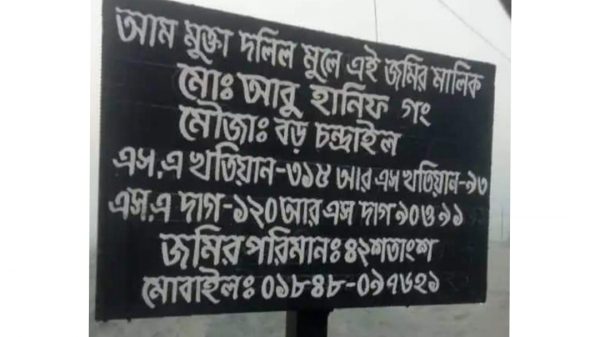 আম মুক্তা দলিল মুলে এই জমির মালিক
মোঃ আবু হানিফ গং
মৌজাঃ বড় চন্দ্রাইল
এস.এ খতিয়ান-৩১৫ আর এস খতিয়ান-৯৩
এস.এ দাগ-১২০ আর এস দাগ ৯০ ও ৯১
জমির পরিমানঃ ৪২শতাংশ
মোবাইলঃ ০১৮৪৮-০৯৭৬২১